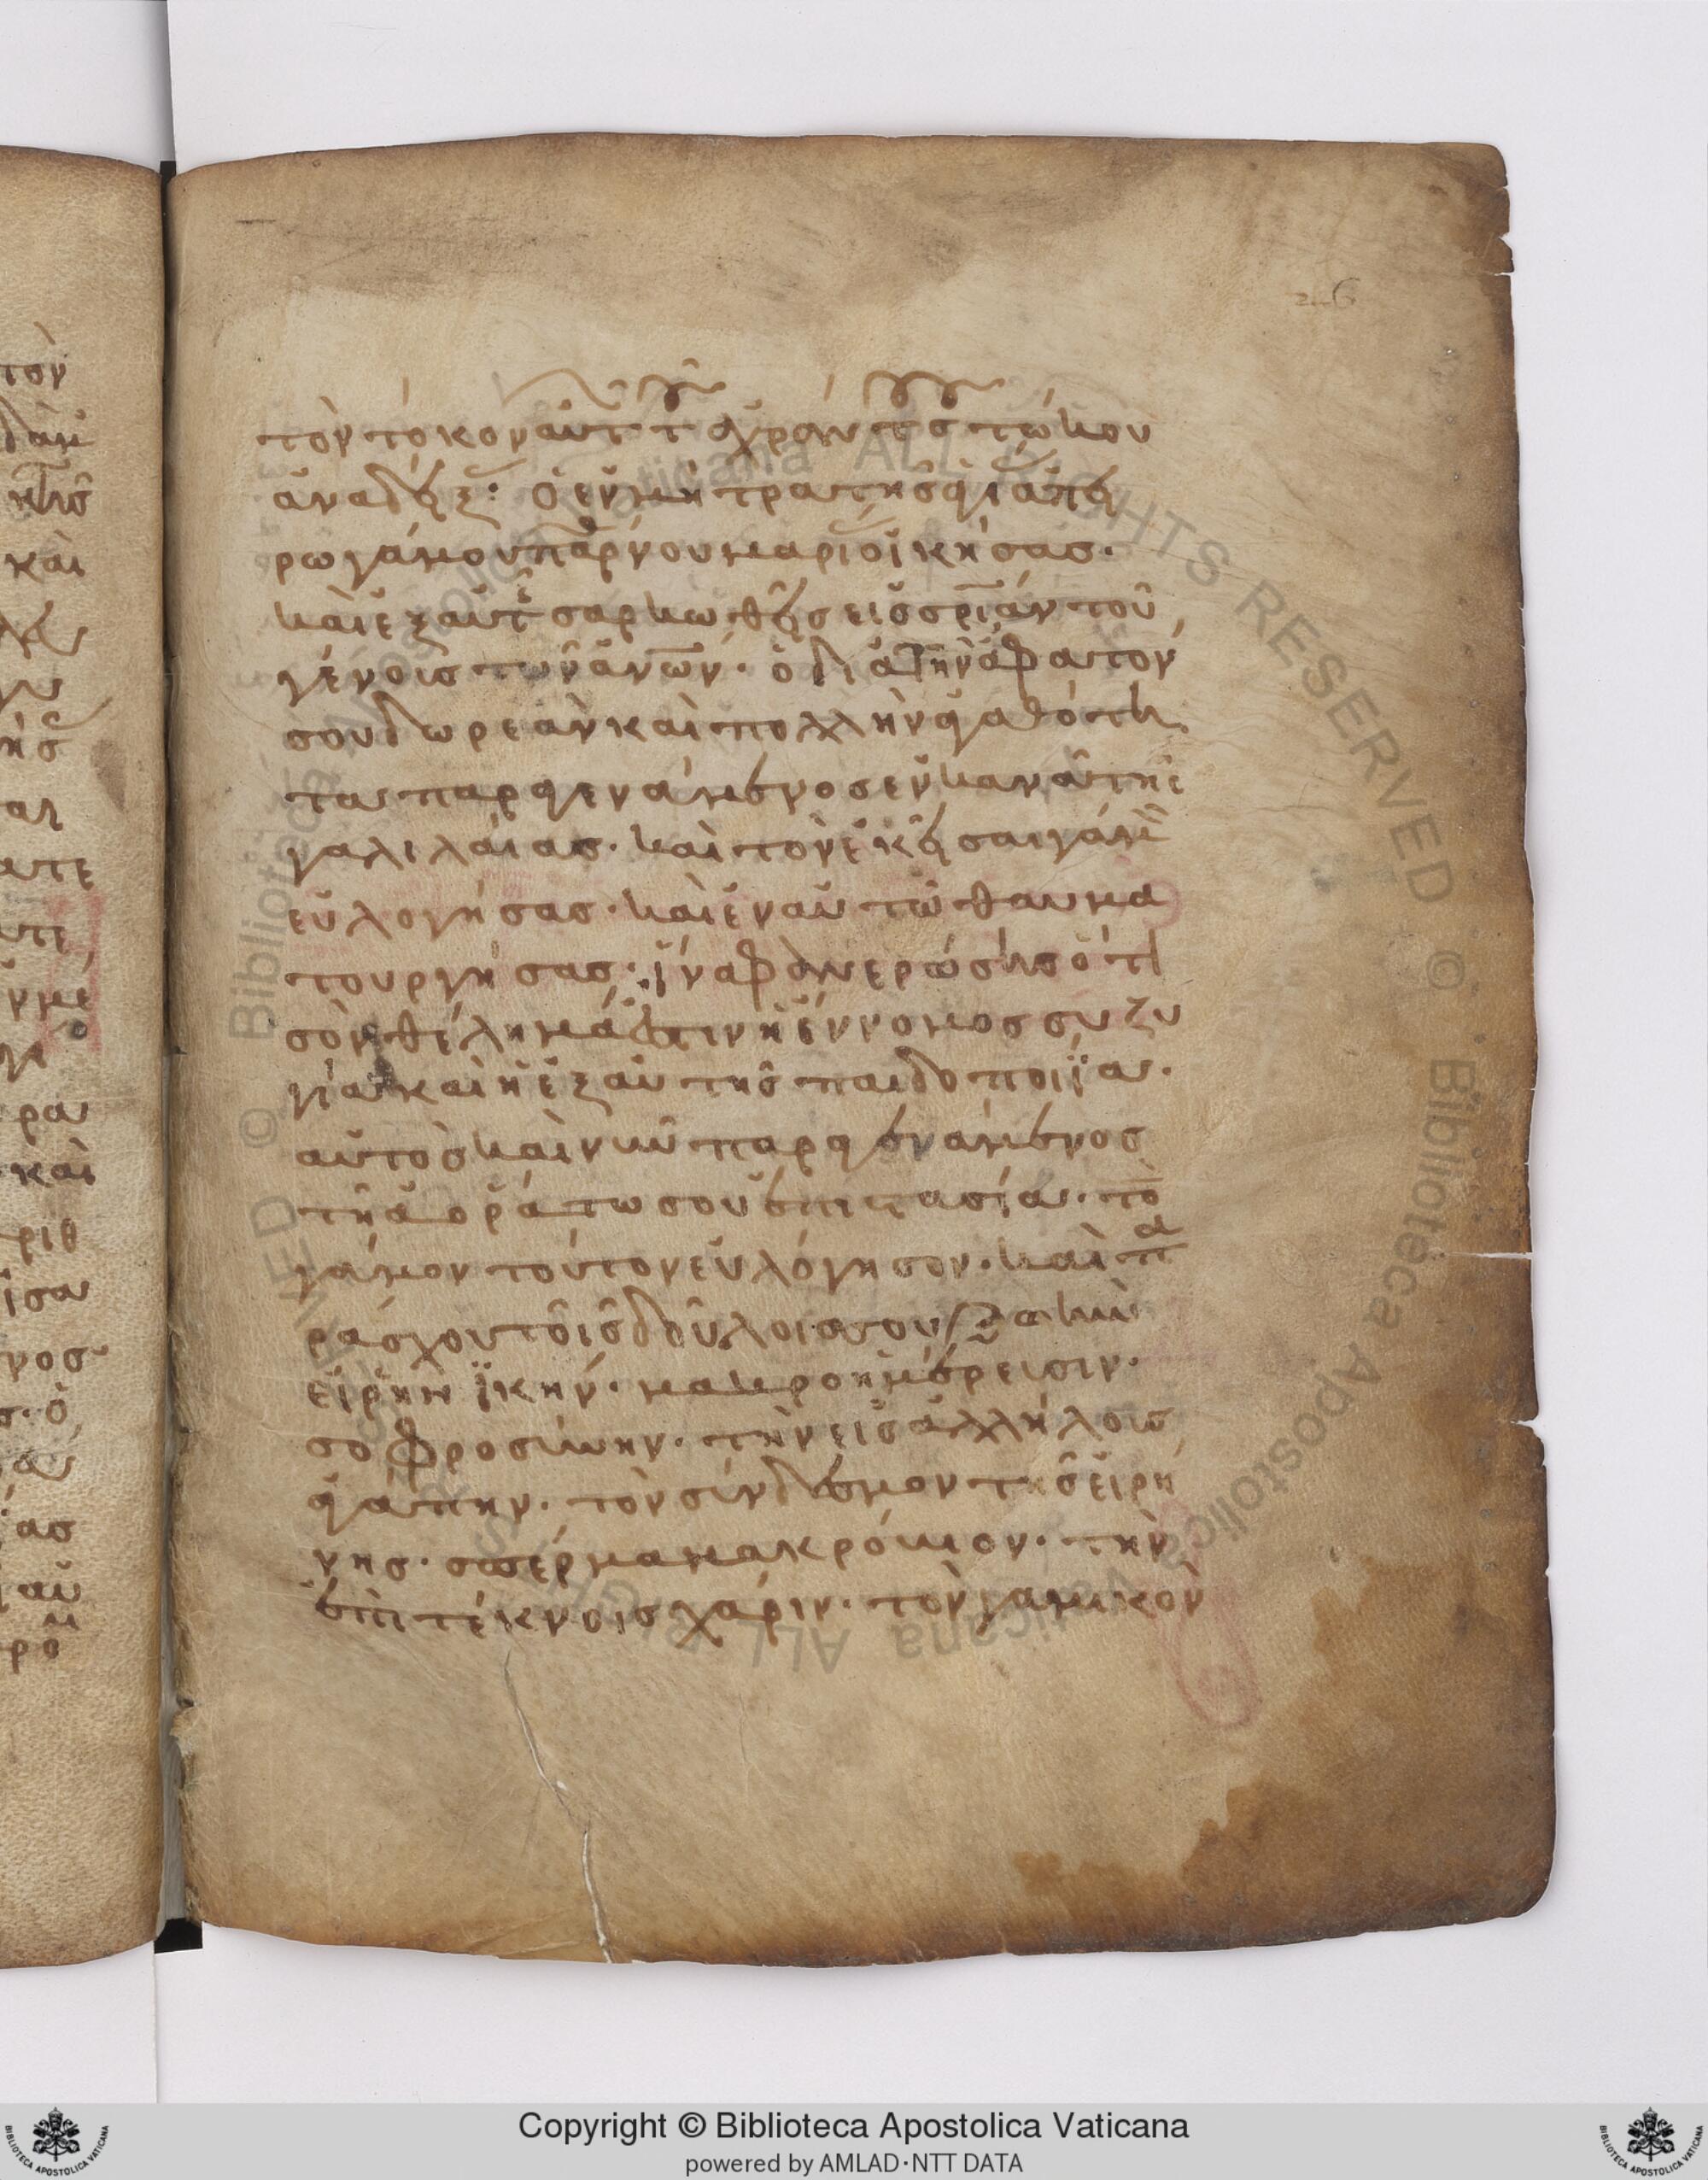 26
τὸν τόκον αὐτ τ ἄχραντος τώκου
ἀναδεξ: Ὁ ἐν μη τραπησθι ἀπει
ρωγάμου παρνου μαρι οἰκήσας·
καὶ ἐξ αὐτ σαρκωθεὶς εἰς σριαν τοῦ
γένοις τῶν ἀνων· ὁ διὰ τὴν ἄφατόν
σου δωρεὰν καὶ πολλὴν ἀγαθότη
τα παραγενάμενος ἐν κανᾶ τῆς
γαλιλαίας· καὶ τὸν ἐκεῖσαι γάμον
εὐλογήσας· καὶ ἐν αὐτῶ θαυμα
τουργήσας· ἵνα φανερώσης ὅτι
σὸν θέλημά ἐστιν ἡ ἔννομος συζυ
γία καὶ ἡ ἐξ αὐτῆς παιδοποιΐα·
αὐτὸς καὶ νῦν παραγενάμενος
τῆ ἀοράτω σου ἐπιστασία· τὸ
γάμον τοῦτον εὐλόγησον· καὶ πα
ράσχου τοῖς δούλοις σου ζωὴν
εἰρηνϊκήν· μακροημέρεισιν·
σοφροσύνην· τὴν εἰς ἀλλήλοις
ἀγάπην· τὸν σύνδεσμον τῆς εἰρή
νης· σπέρμα μακρόνιον· τὴν
ἐπὶ τέκνοις χάριν· τὸν γαμικὸν
Copyright © Biblioteca Apostolica Vaticana
powered by AMLAD·NTT DATA